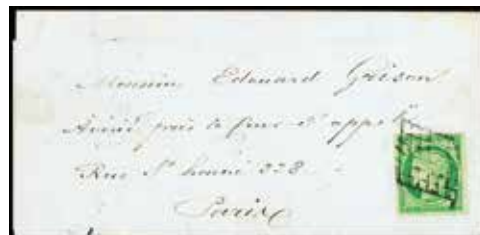 Monsieur Edouard Grison
Avoué près la Cour d'appel
Rue St honoré 328
Paris